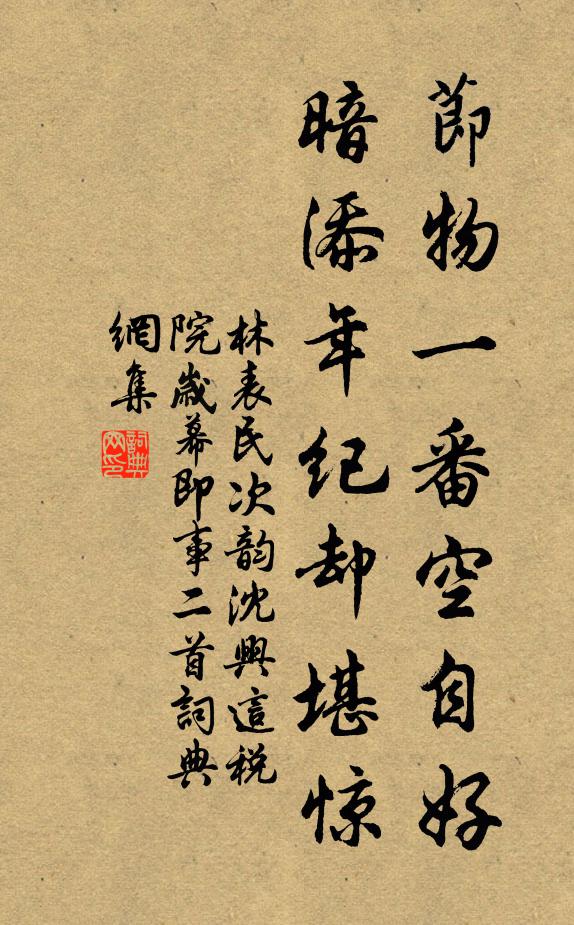 節物一番空自好
暗添年纪却堪惊
林表民次韵沈興這税
院歲幕即事二首詞典
網集
詞典網印